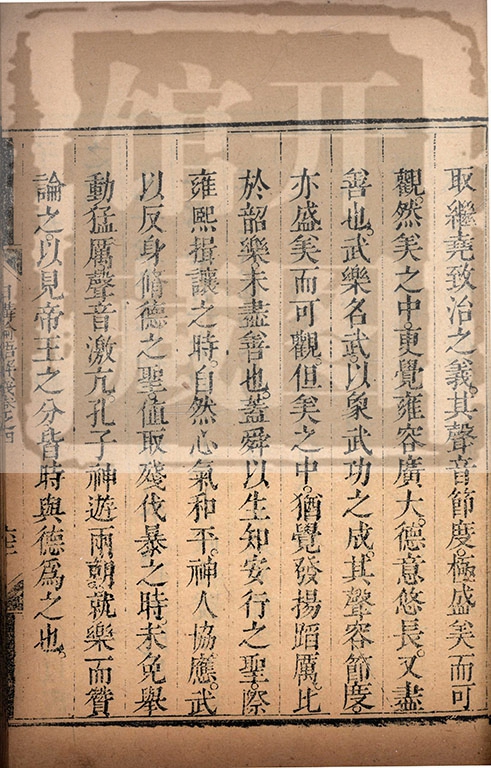 取繼堯致治之義。其聲音節度。極盛矣而可
觀。然美之中。更覺雍容廣大。德意悠長。又盡
善也。武樂名武。以象武功之成。其聲容節度。
亦盛美而可觀。但美之中。猶覺發揚蹈厲。比
於韶樂未盡善也。蓋舜以生知安行之聖。際
雍熙揖讓之時。自然心氣和平。神人協應。武
以反身脩德之聖。值取殘伐暴之時。未免舉
動猛厲。聲音激亢。孔子神遊兩朝。就樂而贊
論之。以見帝王之分。皆時與德為之也。